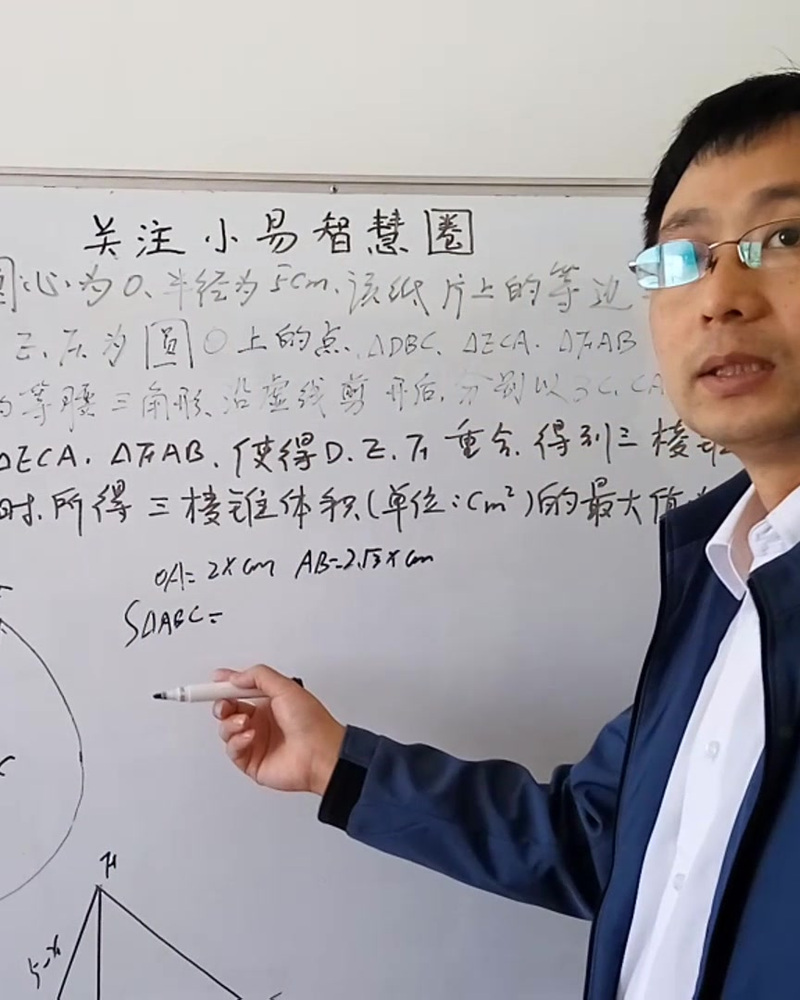 关注小易智慧圈
圆心为O、半径为5cm、该纸片上的等边
E、F、为圆O上的点、△DBC、△ECA、△FAB
的等腰三角形、沿虚线剪开后,分别以BC、CA
△ECA、△FAB、使得D、E、F重合、得到三棱锥
时、所得三棱锥体积(单位:cm²)的最大值为
OA=2xcm AB=2√3xcm
S△ABC=
C
H
5-x